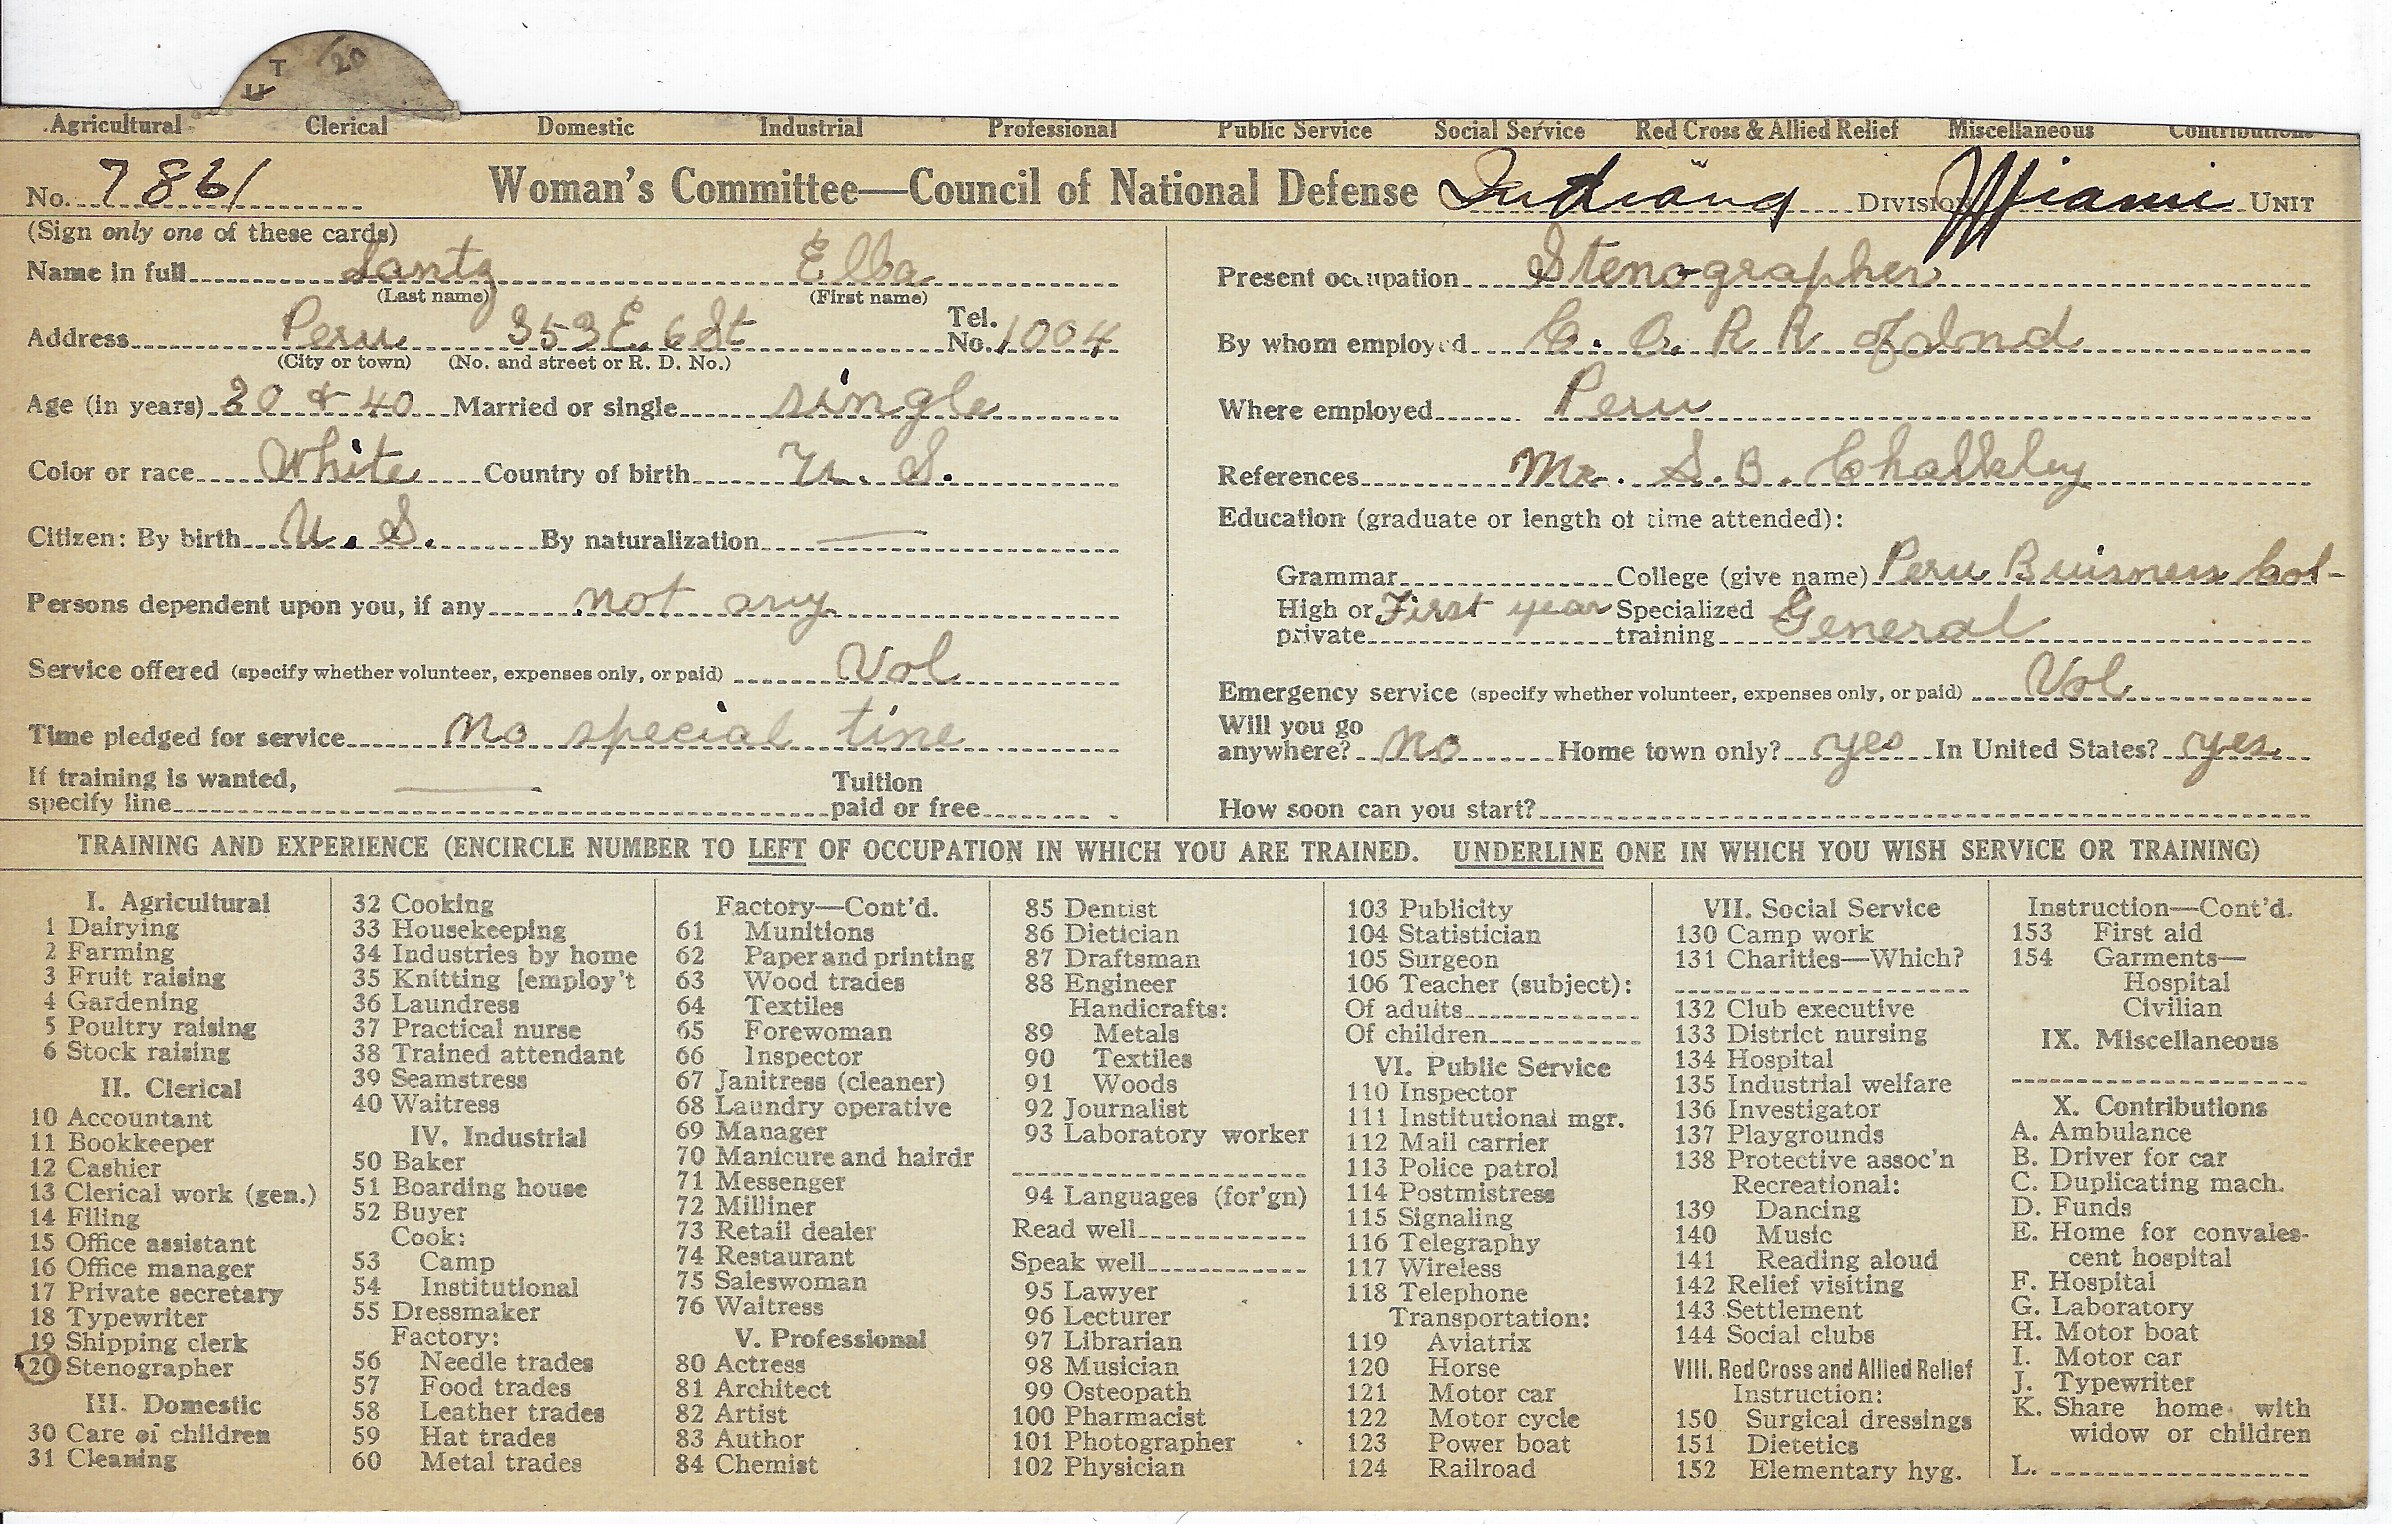 T
20
Agricultural Clerical Domestic Industrial Professional Public Service Social Service Red Cross & Allied Relief Miscellaneous Contributions
No. 7861 Woman's Committee—Council of National Defense Indiana DIVISION Miami UNIT
(Sign only one of these cards)
Name in full Lantz Elba
(Last name) (First name)
Address Peru 353 E. 6 St Tel. No. 1004
(City or town) (No. and street or R. D. No.)
Age (in years) 20 & 40 Married or single single
Color or race White Country of birth U. S.
Citizen: By birth U. S. By naturalization —
Persons dependent upon you, if any not any
Service offered (specify whether volunteer, expenses only, or paid) Vol
Time pledged for service No special time
If training is wanted, specify line — Tuition paid or free
Present occupation Stenographer
By whom employed C. O. R R of Ind
Where employed Peru
References Mr. S. B. Chalkley
Education (graduate or length of time attended):
Grammar College (give name) Peru Buisness Col-
High or private First year Specialized training General
Emergency service (specify whether volunteer, expenses only, or paid) Vol
Will you go anywhere? No Home town only? yes In United States? yes
How soon can you start?
TRAINING AND EXPERIENCE (ENCIRCLE NUMBER TO LEFT OF OCCUPATION IN WHICH YOU ARE TRAINED. UNDERLINE ONE IN WHICH YOU WISH SERVICE OR TRAINING)
I. Agricultural
1 Dairying
2 Farming
3 Fruit raising
4 Gardening
5 Poultry raising
6 Stock raising
II. Clerical
10 Accountant
11 Bookkeeper
12 Cashier
13 Clerical work (gen.)
14 Filing
15 Office assistant
16 Office manager
17 Private secretary
18 Typewriter
19 Shipping clerk
20 Stenographer
III. Domestic
30 Care of children
31 Cleaning
32 Cooking
33 Housekeeping
34 Industries by home
35 Knitting [employ't
36 Laundress
37 Practical nurse
38 Trained attendant
39 Seamstress
40 Waitress
IV. Industrial
50 Baker
51 Boarding house
52 Buyer
Cook:
53 Camp
54 Institutional
55 Dressmaker
Factory:
56 Needle trades
57 Food trades
58 Leather trades
59 Hat trades
60 Metal trades
Factory—Cont'd.
61 Munitions
62 Paper and printing
63 Wood trades
64 Textiles
65 Forewoman
66 Inspector
67 Janitress (cleaner)
68 Laundry operative
69 Manager
70 Manicure and hairdr
71 Messenger
72 Milliner
73 Retail dealer
74 Restaurant
75 Saleswoman
76 Waitress
V. Professional
80 Actress
81 Architect
82 Artist
83 Author
84 Chemist
85 Dentist
86 Dietician
87 Draftsman
88 Engineer
Handicrafts:
89 Metals
90 Textiles
91 Woods
92 Journalist
93 Laboratory worker
94 Languages (for'gn)
Read well
Speak well
95 Lawyer
96 Lecturer
97 Librarian
98 Musician
99 Osteopath
100 Pharmacist
101 Photographer
102 Physician
103 Publicity
104 Statistician
105 Surgeon
106 Teacher (subject):
Of adults
Of children
VI. Public Service
110 Inspector
111 Institutional mgr.
112 Mail carrier
113 Police patrol
114 Postmistress
115 Signaling
116 Telegraphy
117 Wireless
118 Telephone
Transportation:
119 Aviatrix
120 Horse
121 Motor car
122 Motor cycle
123 Power boat
124 Railroad
VII. Social Service
130 Camp work
131 Charities—Which?
132 Club executive
133 District nursing
134 Hospital
135 Industrial welfare
136 Investigator
137 Playgrounds
138 Protective assoc'n
Recreational:
139 Dancing
140 Music
141 Reading aloud
142 Relief visiting
143 Settlement
144 Social clubs
VIII. Red Cross and Allied Relief
Instruction:
150 Surgical dressings
151 Dietetics
152 Elementary hyg.
Instruction—Cont'd.
153 First aid
154 Garments—
Hospital
Civilian
IX. Miscellaneous
X. Contributions
A. Ambulance
B. Driver for car
C. Duplicating mach.
D. Funds
E. Home for convales-
cent hospital
F. Hospital
G. Laboratory
H. Motor boat
I. Motor car
J. Typewriter
K. Share home with
widow or children
L.